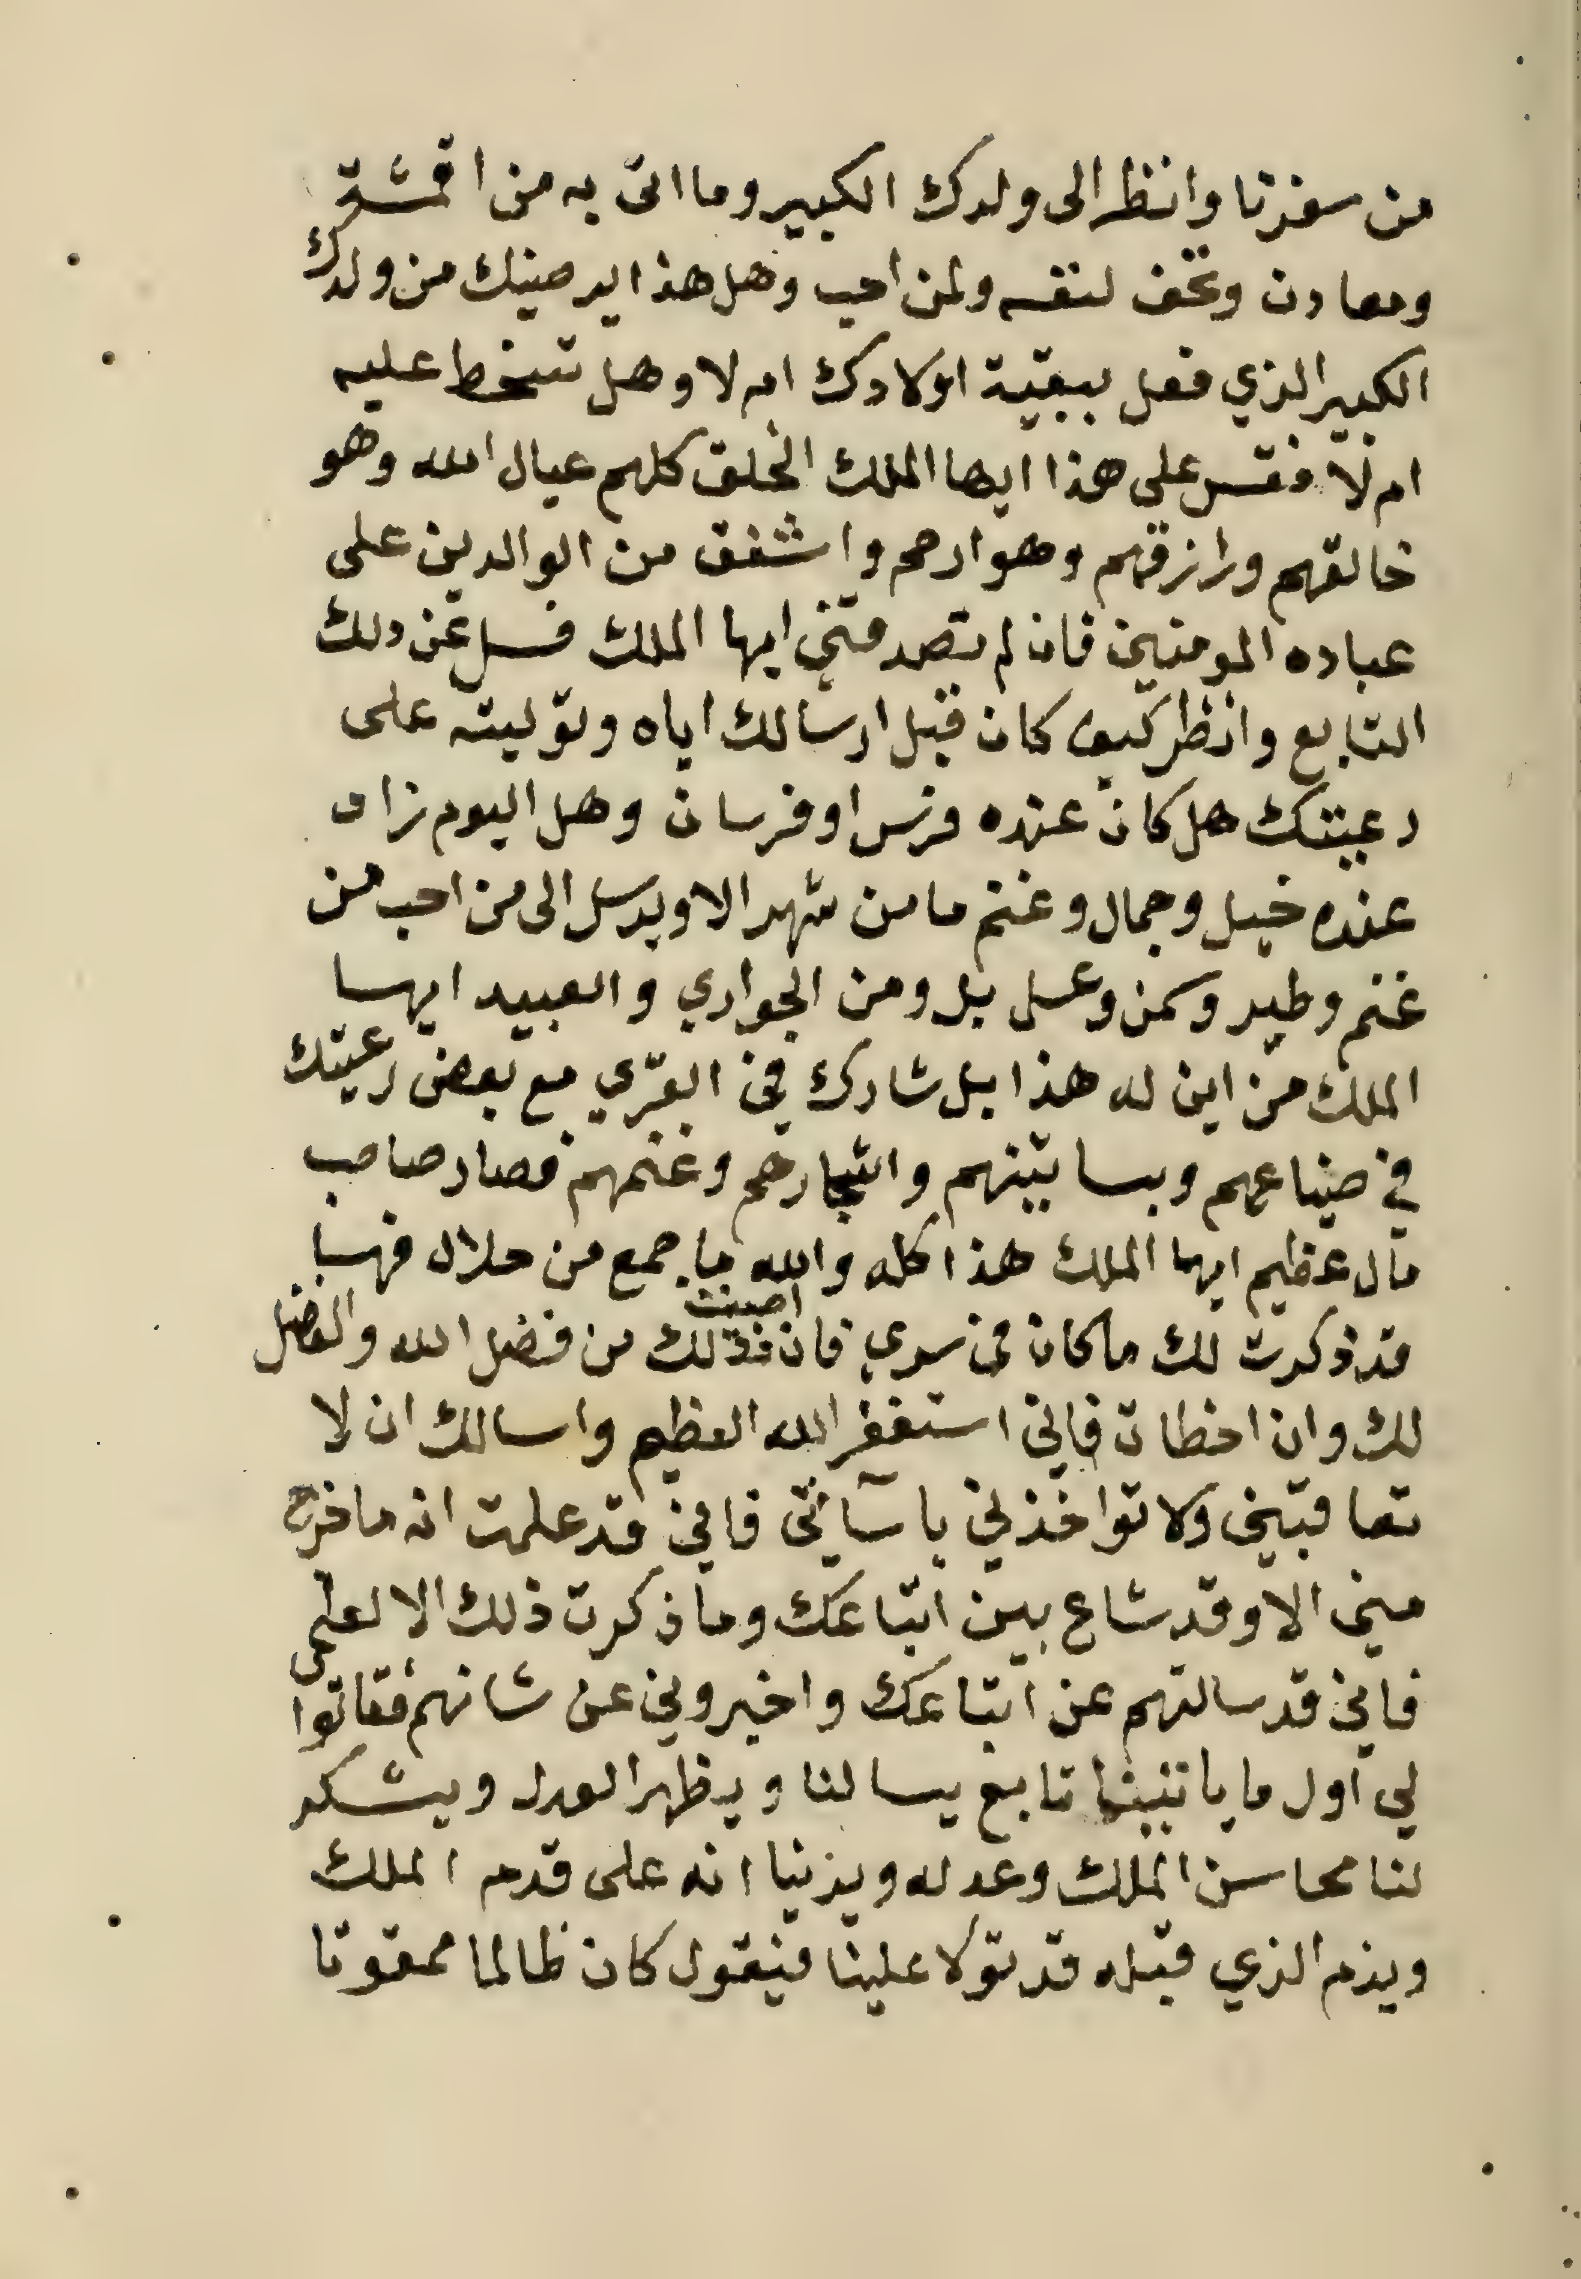 من سفرنا وانظر الى ولدك الكبير وما اتى به من اقمشة
ومعادن وتحف لنفسه ولمن احب وهل هذا يرضيك من ولدك
الكبير الذي فعل ببقية اولادك ام لا وهل تسخط عليه
ام لا فقس على هذا ايها الملك الخلق كلهم عيال الله وهو
خالقهم ورازقهم وهو ارحم واشفق من الوالدين على
عباده المومنين فان لم تصدقني ايها الملك فسل عن ذلك
التابع وانظر كيف كان قبل ارسالك اياه وتوليته على
رعيتك هل كان عنده فرس او فرسان وهل اليوم زاد
عنده خيل وجمال وغنم ما من شهر الا ويرسل الى من احب من
غنم وطير وسمن وعسل بل ومن الجواري والعبيد ايها
الملك من اين له هذا بل شارك في القرى مع بعض رعيتك
في ضياعهم وبساتينهم واتجارهم وغنمهم فصار صاحب
مال عظيم ايها الملك هذا كله والله ما جمع من حلال فها انا
قد ذكرت لك ما كان في سري فان اصبت فذلك من فضل الله والفضل
لك وان اخطات فاني استغفر الله العظيم واسالك ان لا
تعاقبني ولا تواخذني باسآتي فاني قد علمت انه ما خرج
مني الا وقد شاع بين اتباعك وما ذكرت ذلك الا لعلمي
فاني قد سالتهم عن اتباعك واخبروني عن شانهم فقالوا
لي اول ما ياتينا تابع يسالنا ويظهر العدل ويشكر
لنا محاسن الملك وعدله ويرينا انه على قدم الملك
ويذم الذي قبله قد تولا علينا فيقول كان ظالما ممقوتا